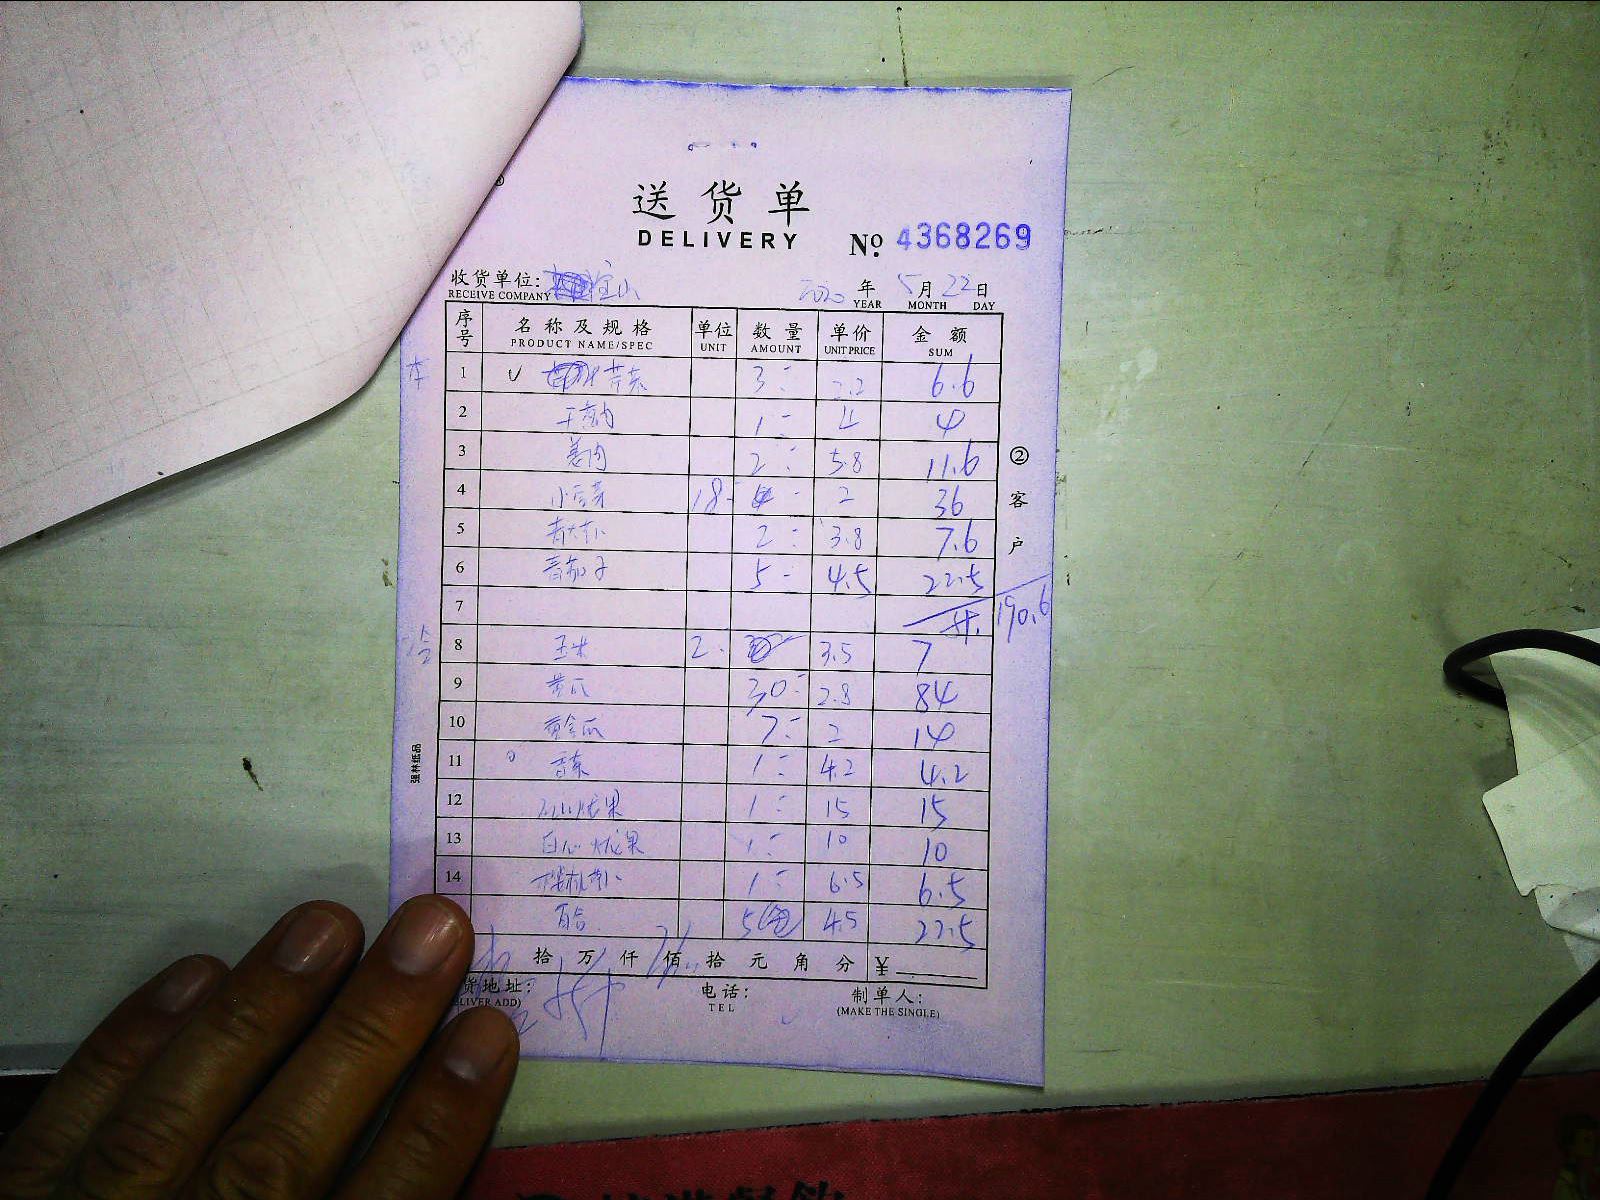 送货单
DELIVERY
No. 4368269
收货单位: 宝山 2020 年 5 月 22 日
RECEIVE COMPANY YEAR MONTH DAY
序号 名称及规格 单位 数量 单价 金额
PRODUCT NAME/SPEC UNIT AMOUNT UNIT PRICE SUM
1 3 2.2 6.6
2 1 4 4
3 姜肉 2 5.8 11.6
4 18 2 36
5 2 3.8 7.6
6 青茄子 5 4.5 22.5
7 190.6
8 玉米 2 3.5 7
9 黄瓜 30 2.8 84
10 黄金瓜 7 2 14
11 香菜 1 4.2 4.2
12 1 15 15
13 白心火龙果 1 10 10
14 1 6.5 6.5
百合 5 4.5 22.5
拾 万 仟 佰 拾 元 角 分 ¥
货地址: 电话: 制单人:
LIVER ADD) TEL (MAKE THE SINGLE)
②客户
强林纸品